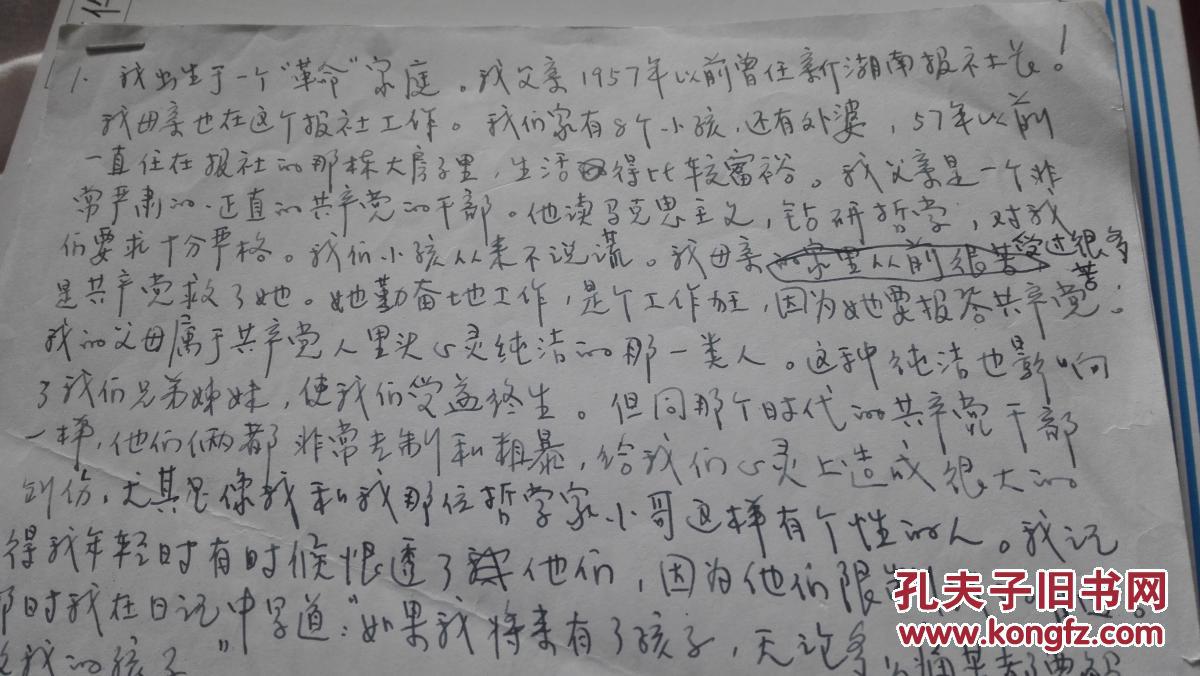 1
1. 我出生于一个“革命”家庭。我父亲1957年以前曾任新湖南报社长。
我母亲也在这个报社工作。我们家有8个小孩,还有外婆,57年以前
一直住在报社的那栋大房子里,生活得比较富裕。我父亲是一个非
常严肃的、正直的共产党的干部。他读马克思主义,钻研哲学,对我
们要求十分严格。我们小孩从来不说谎。我母亲受过很多苦
是共产党救了她。她勤奋地工作,是个工作狂,因为她要报答共产党。
我的父母属于共产党人里头心灵纯洁的那一类人。这种纯洁也影响
了我们兄弟姊妹,使我们受益终生。但同那个时代的共产党干部
一样,他们俩都非常专制和粗暴,给我们心灵上造成很大的
创伤,尤其是像我和我那位哲学家小哥这样有个性的人。我记
得我年轻时有时候恨透了他们,因为他们限
那时我在日记中写道:“如果我将来有了孩子,无论多
我的孩子”
孔夫子旧书网
www.kongfz.com